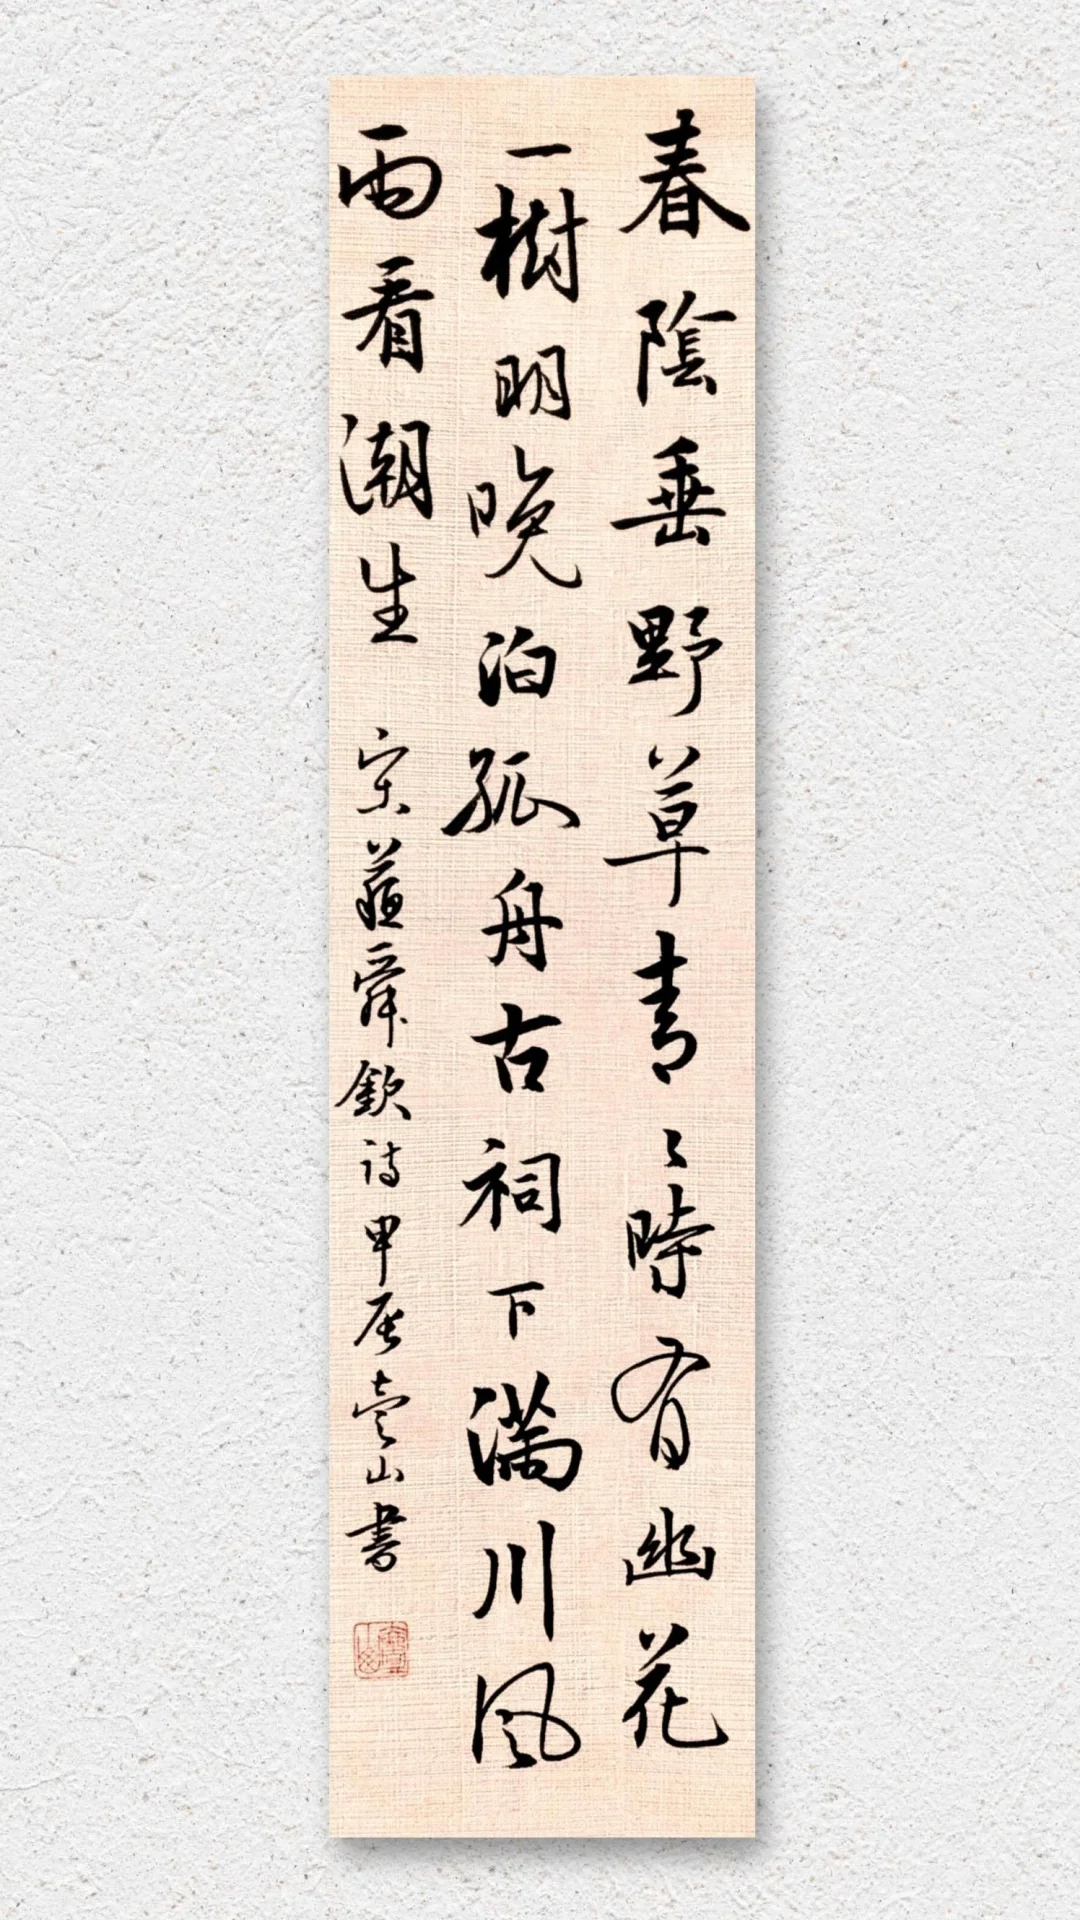 春陰垂野草青〻時有幽花
一樹明晚泊孤舟古祠下滿川风
雨看潮生 宋蘇舜欽诗甲辰壹山書